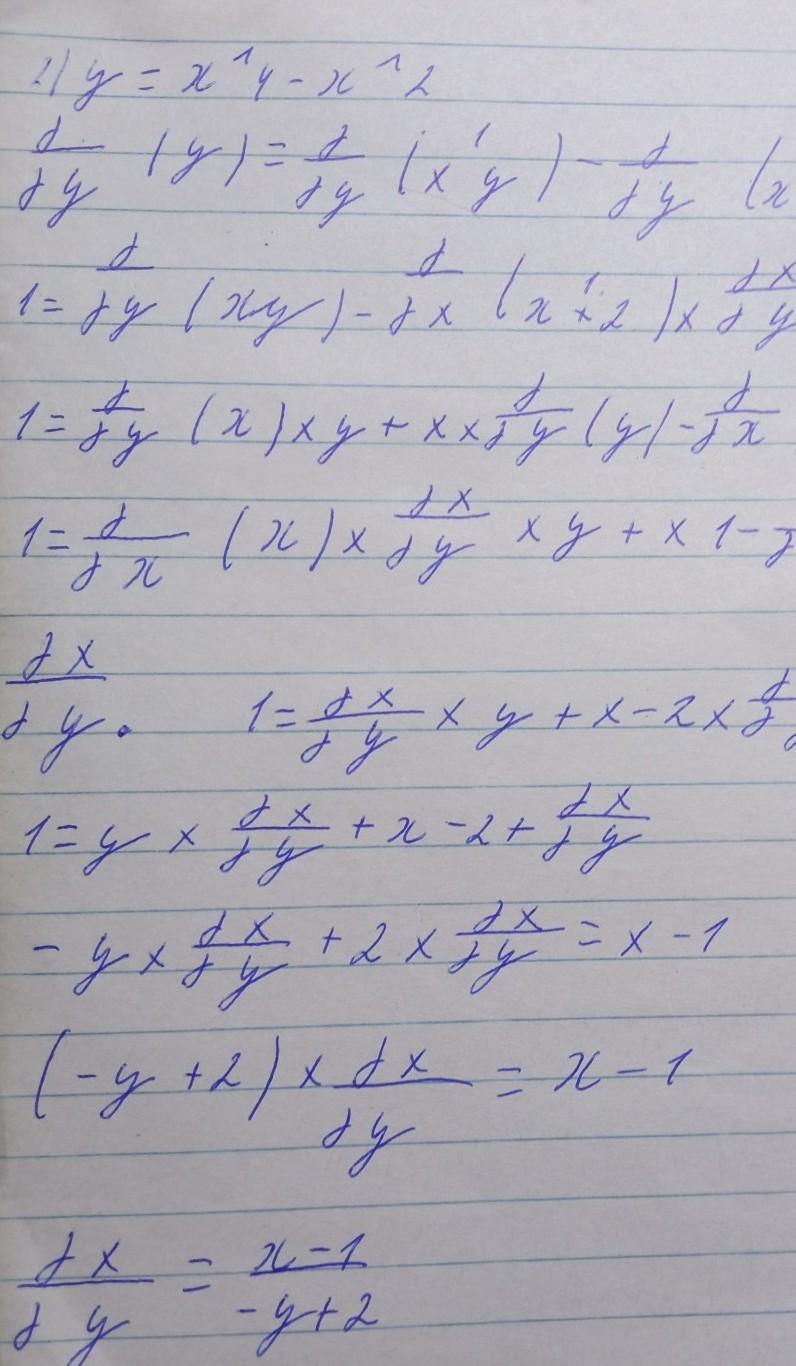 2) y = x^1 y - x^1 2
d/dy (y) = d/dy (x^1 y) - d/dy (x
1 = d/dy (xy) - d/dx (x^1 × 2) × dx/dy
1 = d/dy (x) × y + x × d/dy (y) - d/dx
1 = d/dx (x) × dx/dy × y + x 1 -
dx/dy. 1 = dx/dy × y + x - 2 × d/
1 = y × dx/dy + x - 2 + dx/dy
- y × dx/dy + 2 × dx/dy = x - 1
(-y + 2) × dx/dy = x - 1
dx/dy = x - 1/-y + 2